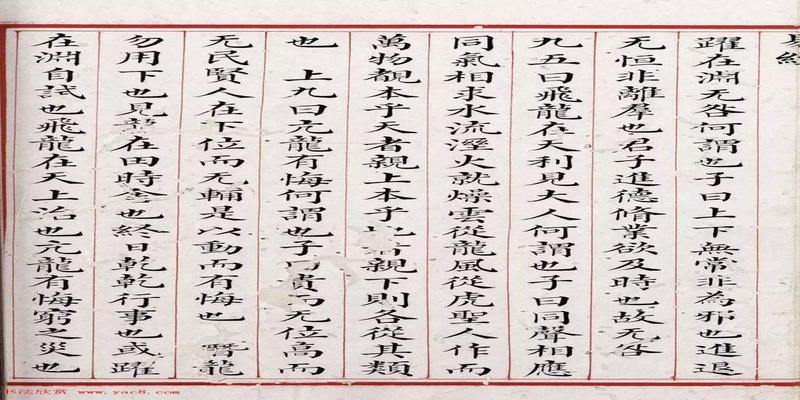 躍在淵无咎何謂也子曰上下無常非為邪也進退
无恒非離羣也君子進德脩業欲及時也故无咎
九五曰飛龍在天利見大人何謂也子曰同聲相應
同氣相求水流溼火就燥雲從龍風從虎聖人作而
萬物覩本乎天者親上本乎地者親下則各從其類
也 上九曰亢龍有悔何謂也子曰貴而无位高而
无民賢人在下位而无輔是以動而有悔也 潛龍
勿用下也見龍在田時舍也終日乾乾行事也或躍
在淵自試也飛龍在天上治也亢龍有悔窮之災也
书法欣赏 www.yac8.com